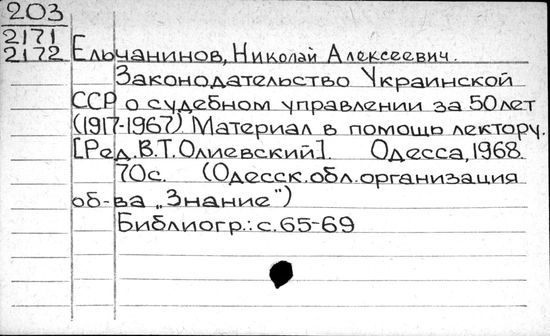 203
2171
2172
Ельчанинов, Николай Алексеевич.
Законодательство Украинской
ССР о судебном управлении за 50 лет
(1917-1967). Материал в помощь лектору.
[Ред. В.Т. Олиевский]. Одесса, 1968.
70с. (Одесск. обл. организация
об-ва „Знание")
Библиогр.: с. 65-69